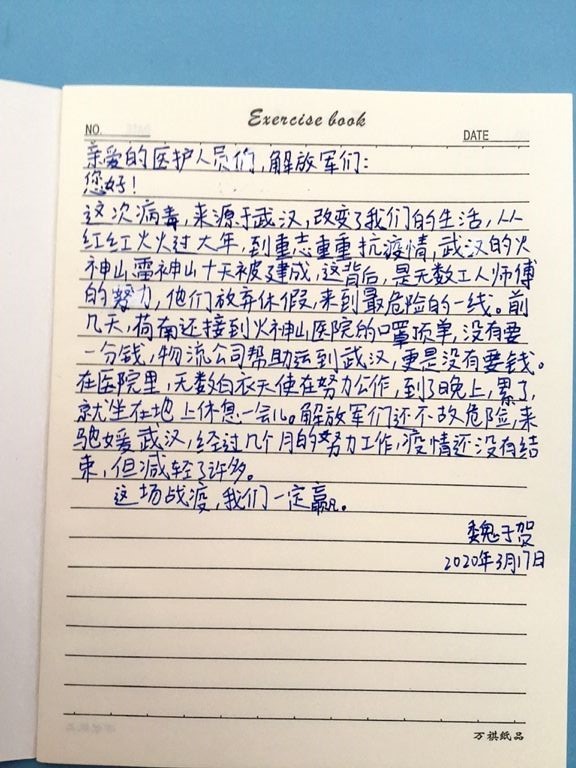 Exercise book
NO.
DATE
亲爱的医护人员们,解放军们:
您好!
这次病毒,来源于武汉,改变了我们的生活,从
红红火火过大年,到重志重重抗疫情,武汉的火
神山雷神山十天被建成,这背后,是无数工人师傅
的努力,他们放弃休假,来到最危险的一线。前
几天,荷南还接到火神山医院的口罩项单,没有要
一分钱,物流公司帮助运到武汉,更是没有要钱。
在医院里,无数白衣天使在努力公作,到了晚上,累了,
就坐在地上休息一会儿。解放军们还不故危险,来
驰媛武汉,经过几个月的努力工作,疫情还没有结
束,但减轻了许多。
这场战疫,我们一定赢。
魏于贺
2020年3月17日
万祺纸品